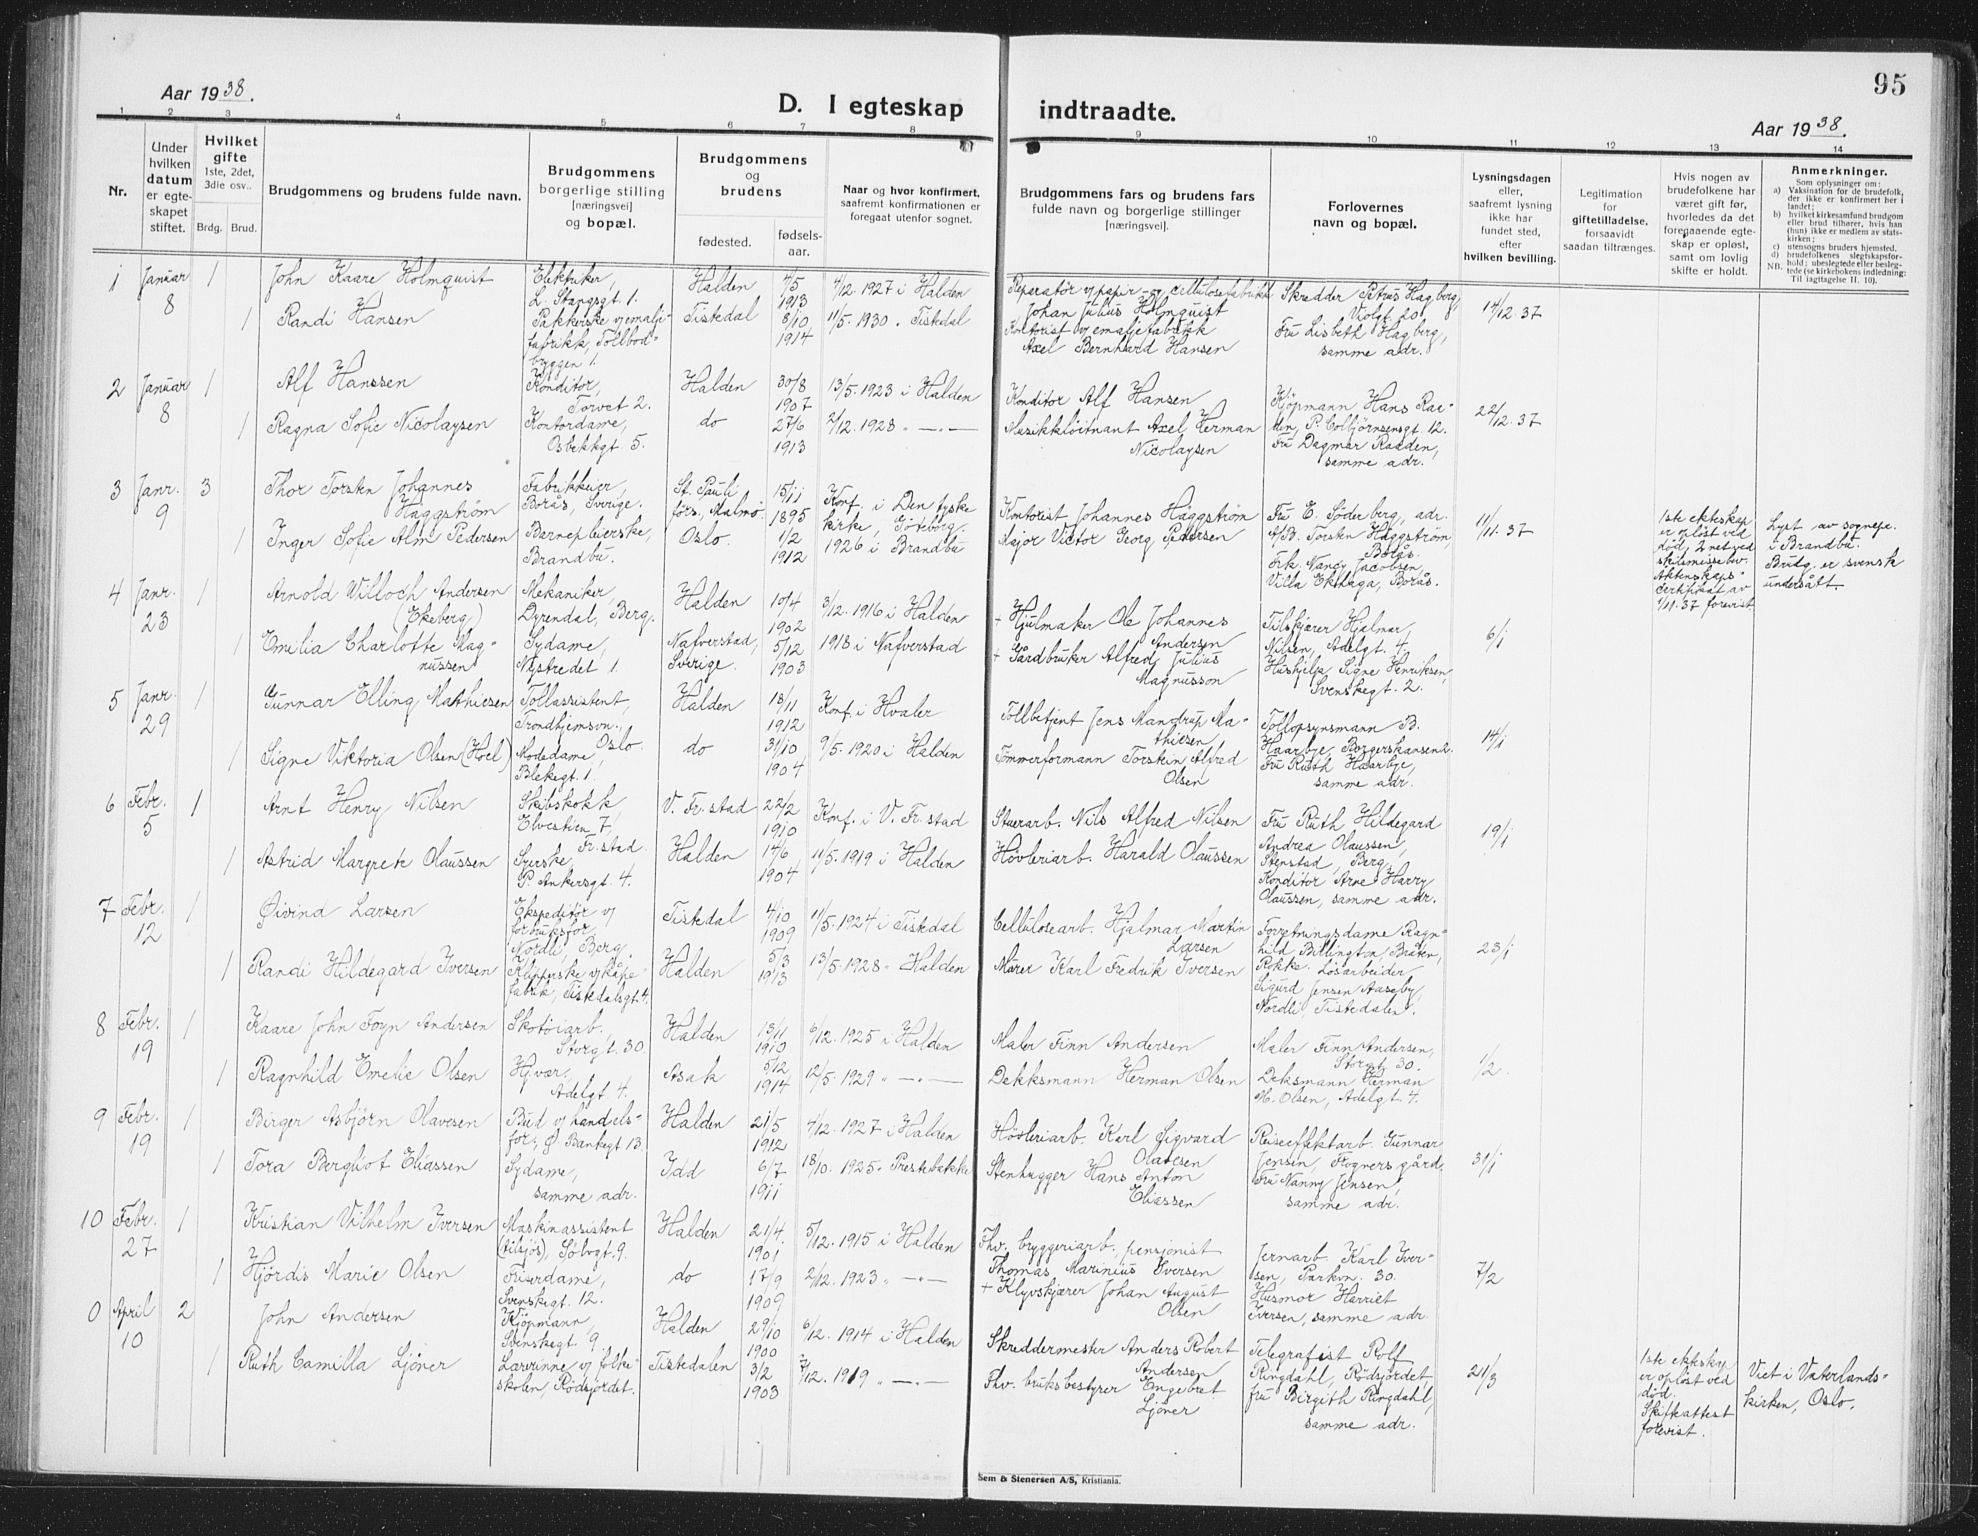 95
Aar 1938.
D. I egteskap
indtraadte.
Aar 1938.
1 2 3 4 5 6 7 8 9 10 11 12 13 14
Nr.
Under
hvilken
datum
er egte-
skapet
stiftet.
Hvilket
gifte
1ste, 2det,
3die osv..
Brdg. Brud.
Brudgommens og brudens fulde navn.
Brudgommens
borgerlige stilling
[næringsvei]
og bopæl.
Brudgommens
og
brudens
fødested.
fødsels-
aar.
Naar og hvor konfirmert,
saafremt konfirmationen er
foregaat utenfor sognet.
Brudgommens fars og brudens fars
fulde navn og borgerlige stillinger
[næringsvei]
Forlovernes
navn og bopæl.
Lysningsdagen
eller,
saafremt lysning
ikke har
fundet sted,
efter
hvilken bevilling.
Legitimation
for
giftetilladelse,
forsaavidt
saadan tiltrænges.
Hvis nogen av
brudefolkene har
været gift før,
hvorledes da det
foregaaende egte-
skap er opløst,
samt om lovlig
skifte er holdt.
Anmerkninger.
Som oplysninger om:
a) Vaksination for de brudefolk,
der ikke er konfirmert her i
landet;
b) hvilket kirkesamfund brudgom
eller brud tilhører, hvis han
(hun) ikke er medlem av stats-
kirken;
c) utensogns bruders hjemsted.
d) brudefolkenes slegtskapsfor-
hold; ubeslegtede eller besleg-
NB. tede (se kirkebokens indledning:
Til iagttagelse II. 10).
1 Januar 8
1 John Kaare Holmquist
Elektriker,
L. Stangsgt. 1.
Halden
4/5
1913
4/12. 1927 i Halden
Reparatør v/papir- og cellulosefabrikk
Johan Julius Holmquist
Skredder Petrus Hagberg,
Violgt. 20.
14/12. 37
1 Randi Hansen
Pakkerske v/emalje-
fabrikk, Tollbod-
bryggen 1.
Tistedal
8/10
1914
11/5. 1930 . Tistedal
Kontorist v/emaljefabrikk
Axel Bernhard Hansen
Fru Lisbeth Hagberg,
samme adr.
2 Januar 8
1 Alf Hanssen
Konditor,
Torvet 2.
Halden
30/8
1907
13/5. 1923 i Halden
Konditor Alf Hansen
Kjøpmann Hans Raa-
den, P. Colbjørnsensgt. 12.
22/12. 37
1 Ragna Sofie Nicolaysen
Kontordame,
Osbekkgt. 5.
do
27/6
1913
2/12. 1928 " — " —
Musikkløitnant Axel Herman
Nicolaysen
Fru Dagmar Raaden,
samme adr.
3 Janr. 9
3 Thor Torsten Johannes
Häggström
Fabrikkeier,
Borås, Sverige.
St. Pauli
førs., Malmö.
15/11
1895
Konf. i Den tyske
kirke, Göteborg.
Kontorist Johannes Häggström
Fru E. Söderberg, adr.
A/B. Torsten Häggström,
Borås.
11/11. 37
1ste ekteskap
er opløst ved
død, 2net ved
skilsmissebev.
Äktenskaps-
certifikat av
1/11. 37 forevist
Lyst av sognepr.
i Brandbu.
Brudg. er svensk
undersått.
1 Inger Sofie Alm Pedersen
Barnepleierske,
Brandbu.
Oslo.
1/2
1912
1926 i Brandbu
Major Victor Georg Pedersen
Frk. Nancy Jacobsen,
Villa Ekhaga, Borås.
4 Janr. 23
1 Arnold Willoch Andersen
(Ekeberg)
Mekaniker,
Dyrendal, Berg.
Halden
10/4
1902
3/12. 1916 i Halden
+ Hjulmaker Ole Johannes
Andersen
Tilskjærer Hjalmar
Nilsen, Adelgt. 4.
6/1
1 Emilia Charlotte Mag-
nussen
Sydame,
Nystredet 1.
Nafverstad,
Sverige.
5/12
1903
1918 i Nafverstad
+ Gårdbruker Alfred Julius
Magnusson
Hushjelp Signe Henriksen,
Svenskegt. 2.
5 Janr. 29
1 Gunnar Elling Mathiesen
Tollassistent,
Trondhjemsvn.,
Oslo.
Halden
18/11
1912
Konf. i Hvaler
Tollbetjent Jens Mandrup Ma-
thiesen
Tollopsynsmann B.
Haarbye, Borgerskansen 2.
14/1
1 Signe Viktoria Olsen (Hoel)
Modedame,
Blekegt. 1.
do
31/10
1904
9/5. 1920 i Halden
Tømmerformann Torsten Alfred
Olsen
Fru Ruth Haarbye,
samme adr.
6 Febr. 5
1 Arnt Henry Nilsen
Skibskokk
Elvestien 7,
Fr.stad
V. Fr.stad
22/2
1910
Konf. i V. Fr.stad
Stuerarb. Nils Alfred Nilsen
Fru Ruth Hildegard
Andrea Olaussen,
Stenstad, Berg.
19/1
1 Astrid Margrete Olaussen
Syerske,
P. Ankersgt. 4.
Halden
14/6
1904
11/5. 1919 i Halden
Høvleriarb. Harald Olaussen
Konditor Arne Harry
Olaussen, samme adr.
7 Febr. 12
1 Øivind Larsen
Ekspeditør v/
forbruksfor.,
Nordli, Berg.
Tistedal
4/10
1909
11/5. 1924 i Tistedal
Cellulosearb. Hjalmar Martin
Larsen
Forretningsdame Ragn-
hild Billington, Bråten,
Rokke.
23/1
1 Randi Hildegard Iversen
Klipperske v/kåpe-
fabrik, Tistedalsgt. 4.
Halden
5/3
1913
13/5. 1928 " Halden
Murer Karl Fredrik Iversen
Løsarbeider
Sigurd Jensen Aaseby,
Nordli Tistedalen.
8 Febr. 19
1 Kaare John Foyn Andersen
Skotøiarb.
Storgt. 30
Halden
13/11
1910
6/12. 1925 i Halden
Maler Finn Andersen
Maler Finn Andersen,
Storgt. 30.
1/2.
1 Ragnhild Emelie Olsen
Hj.vær.,
Adelgt. 4.
Asak
5/12
1914
12/5. 1929 " — " —
Dekksmann Herman Olsen
Deksmann Herman
M. Olsen, Adelgt. 4.
9 Febr. 19
1 Birger Asbjørn Olavesen
Bud v/handels-
for., Ø Bankegt. 13.
Halden
21/5
1912
4/12. 1927 i Halden
Høvleriarb. Karl Sigvard
Olavesen
Reiseeffektarb. Gunnar
Jensen, Fogners gård,
31/1
1 Tora Bergliot Eliassen
Sydame,
samme adr.
Idd
6/7
1911
18/10. 1925 " Prestebakke
Stenhugger Hans Anton
Eliassen
Fru Nanny Jensen,
samme adr.
10 Febr. 27
1 Kristian Vilhelm Iversen
Maskinassistent
(tilsjøs), Sølvgt. 9.
Halden
21/4
1901
5/12. 1915 i Halden
Fhv. bryggeriarb., pensjonist
Thomas Marinius Iversen
Jernarb. Karl Iver-
sen, Parkvn. 30.
7/2
1 Hjördis Marie Olsen
Friserdame,
Svenskegt. 12.
do
17/9
1909
2/12. 1923 " — " —
+ Klyvskjærer Johan August
Olsen
Husmor Harriet
Iversen, samme adr.
0 April 10
2 John Andersen
Kjøpmann,
Svenskegt. 9.
Halden
29/10
1900
6/12. 1914 i Halden
Skreddermester Anders Robert
Andersen
Telegrafist Rolf
Ringdahl, Rødsfjordet,
21/3
1ste ektesk.
er opløst ved
død.
Skifteattest
forevist.
Viet i Vaterlands-
kirken, Oslo.
1 Ruth Camilla Ljöner
Lærerinne v/ folke-
skolen, Rødsfjordet.
Tistedalen
3/2
1903
7/12. 1919 " — " —
Fhv. bruksbestyrer Engebret
Ljöner
fru Birgith Ringdahl,
samme adr.
Sem & Stenersen A/S, Kristiania.